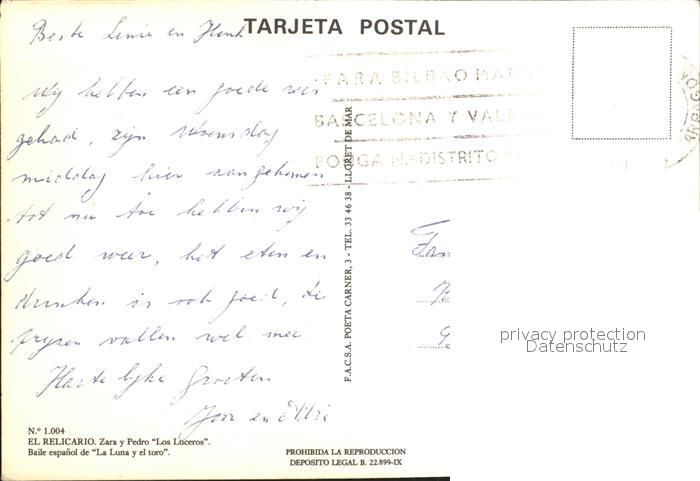 TARJETA POSTAL
Beste Linie en Henk
Wij hebben een goede reis
gehad, zijn woensdag
middag hier aangekomen
tot nu toe hebben wij
goed weer, het eten en
drinken is ook goed, de
prijzen vallen wel mee.
Hartelijke Groeten
en
PARA BILBAO MAD
BARCELONA Y VALE
PONGA Nº DISTRITO
F.A.C.S.A. POETA CARNER, 3 - TEL. 33 46 38 - LLORET DE MAR
Fam
privacy protection
Datenschutz
N.º 1.004
EL RELICARIO. Zara y Pedro "Los Luceros".
Baile español de "La Luna y el toro".
PROHIBIDA LA REPRODUCCION
DEPOSITO LEGAL B. 22.899-IX